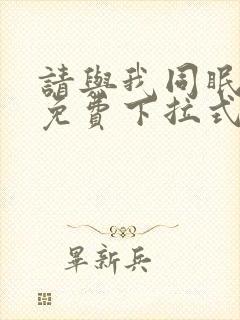 請與我同眠
免費下拉式
畢新兵